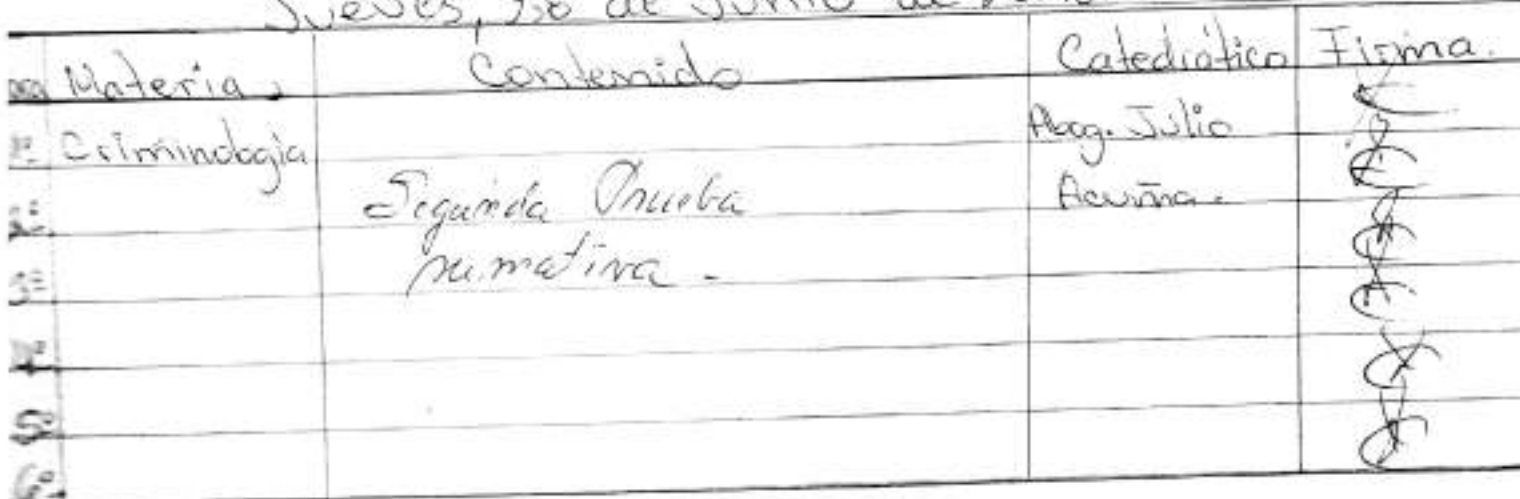 Jueves, de Junio de
Materia Contenido Catedrático Firma.
1ª Criminología Abog. Julio
2ª Segunda Prueba Acuña.
3ª sumativa.
4ª
5ª
6ª